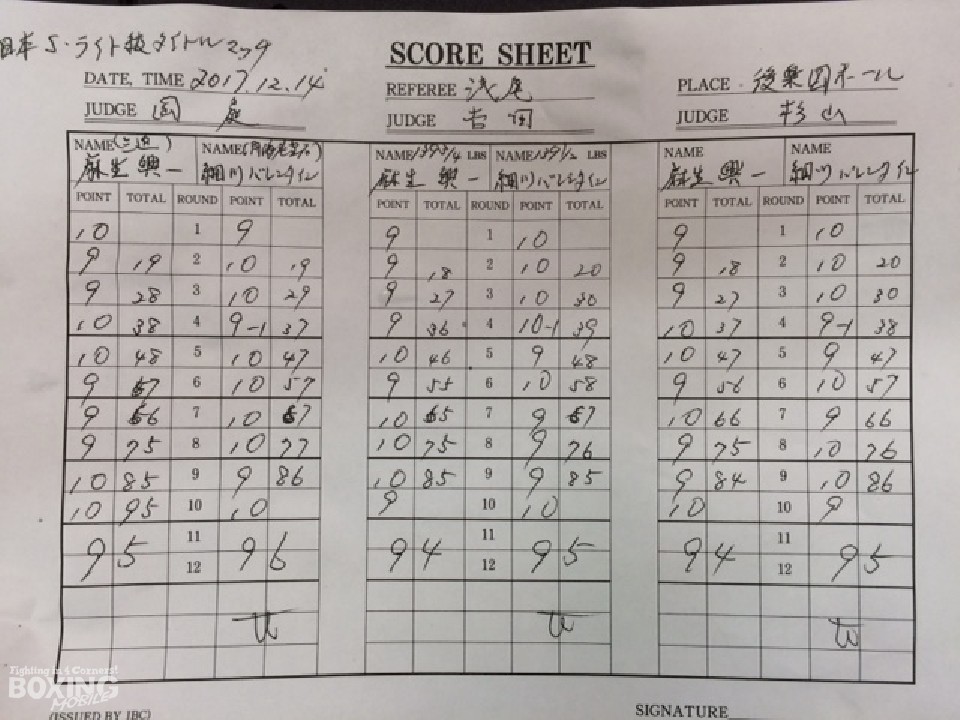 日本S・ライト級タイトルマッチ
SCORE SHEET
DATE, TIME 2017.12.14
REFEREE 浅尾
PLACE 後楽園ホール
JUDGE
JUDGE 吉田
JUDGE 杉山
NAME (三迫) NAME NAME 139 3/4 LBS NAME 139 1/2 LBS NAME NAME
麻生興一 細川バレンタイン 麻生興一 細川バレンタイン 麻生興一 細川バレンタイン
POINT TOTAL ROUND POINT TOTAL POINT TOTAL ROUND POINT TOTAL POINT TOTAL ROUND POINT TOTAL
10 1 9 9 1 10 9 1 10
9 19 2 10 19 9 18 2 10 20 9 18 2 10 20
9 28 3 10 29 9 27 3 10 30 9 27 3 10 30
10 38 4 9-1 37 9 36 4 10-1 39 10 37 4 9-1 38
10 48 5 10 47 10 46 5 9 48 10 47 5 9 47
9 57 6 10 57 9 55 6 10 58 9 56 6 10 57
9 66 7 10 67 10 65 7 9 67 10 66 7 9 66
9 75 8 10 77 10 75 8 9 76 9 75 8 10 76
10 85 9 9 86 10 85 9 9 85 9 84 9 10 86
10 95 10 10 9 10 10 10 10 9
95 11 96 94 11 95 94 11 95
12 12 12
Fighting in 4 Corners!
BOXING
MOBILE
(ISSUED BY JBC)
SIGNATURE